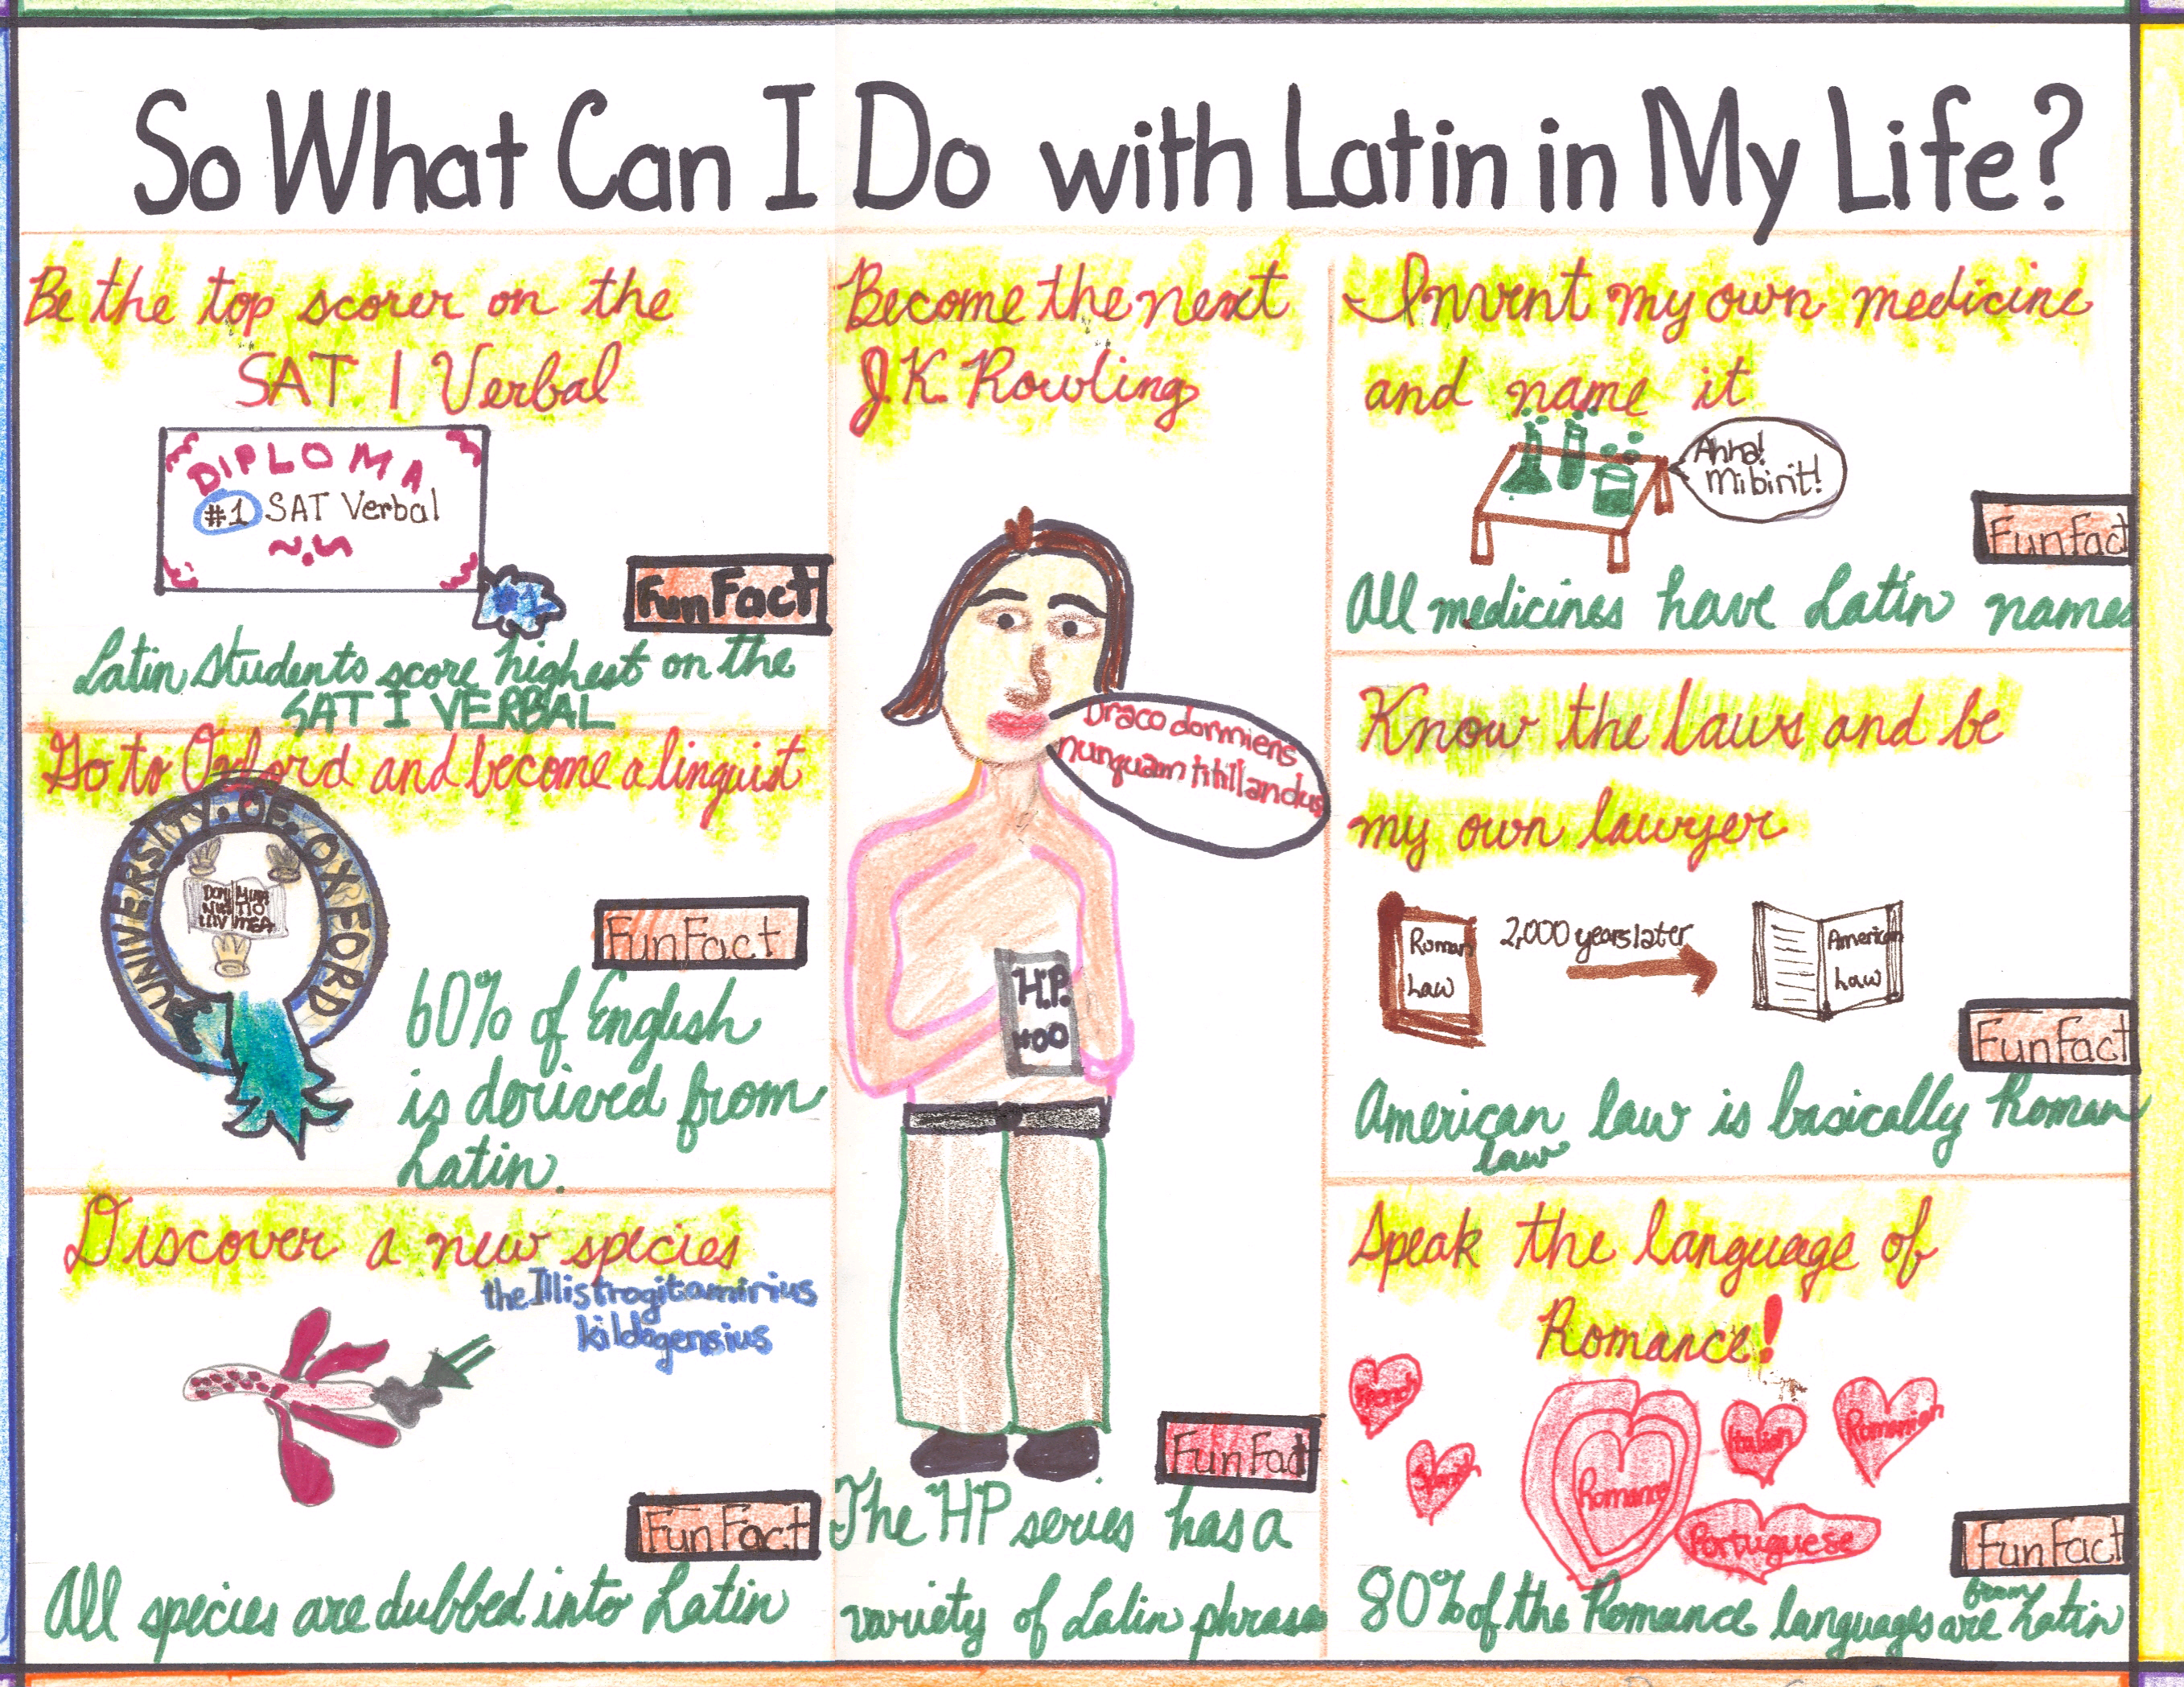 So What Can I Do with Latin in My Life?
Be the top scorer on the
SAT I Verbal
DIPLOMA
#1 SAT Verbal
Fun Fact
Latin Students score highest on the
SAT I VERBAL
Go to Oxford and become a linguist
UNIVERSITY. OF. OXFORD
DOMI MINA
NUS TIO
ILLV MEA
Fun Fact
60% of English
is derived from
Latin.
Discover a new species
the Illistrogitamirius
kildogensius
Fun Fact
All species are dubbed into Latin
Become the next
J.K. Rowling
Draco dormiens
nunquam titillandus
H.P.
#00
Fun Fact
The HP series has a
variety of Latin phrases
Invent my own medicine
and name it
Ahha!
Mibirit!
Fun Fact
All medicines have Latin names
Know the laws and be
my own lawyer
Roman
Law
2,000 years later
American
Law
Fun Fact
American law is basically Roman
law
Speak the language of
Romance!
French
Spanish
Romance
Italian
Romanian
Portuguese
Fun Fact
80% of the Romance languages are from Latin